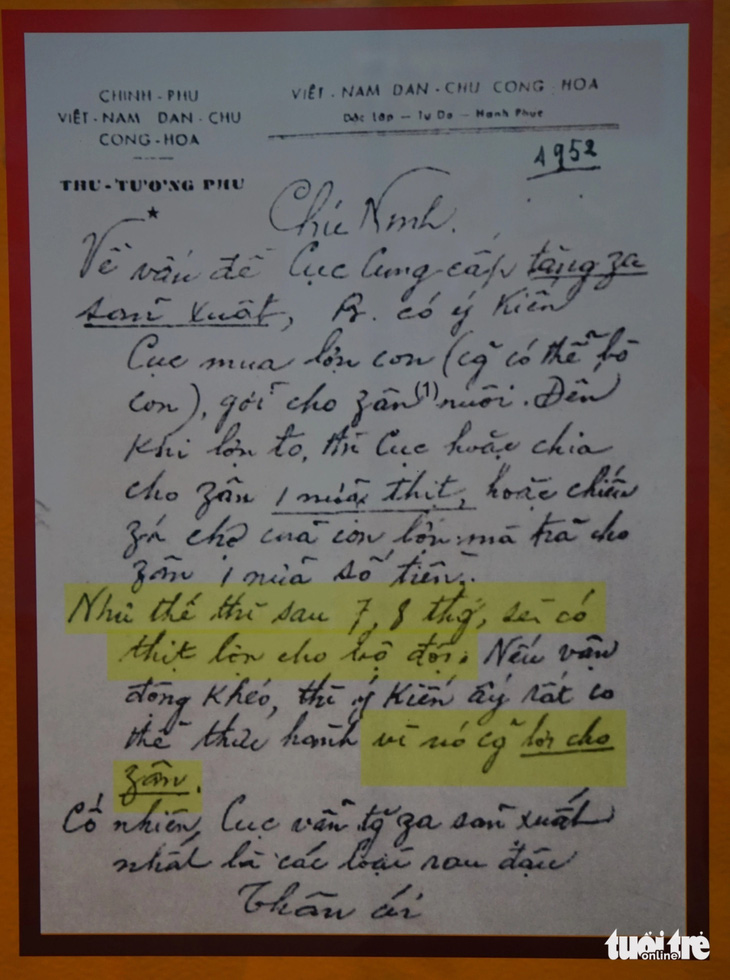 CHINH - PHU
VIỆT - NAM DAN - CHU
CONG - HOA
THU - TƯƠNG PHU
VIỆT - NAM DAN - CHU CONG HOA
Dôc lâp — Tu Do — Hanh Phuc
1952
Chú Ninh.
Về vấn đề Cục Cung cấp tăng za
sản xuất, B. có ý kiến
Cục mua lợn con (cg̃ có thể bò
con), gởi cho zân (1) nuôi. Đến
khi lợn to, thì Cục hoặc chia
cho zân 1 nửa thịt, hoặc chiếu
zá chợ của con lợn mà trả cho
zân 1 nửa số tiền.
Như thế thì sau 7, 8 thg, sẽ có
thịt lợn cho bộ đội. Nếu vận
động khéo, thì ý kiến ấy rất có
thể thực hành vì nó cg̃ lợi cho
zân.
Cố nhiên, Cục vẫn tg za sản xuất
nhất là các loại rau đậu
Thân ái
tuổi trẻ
online